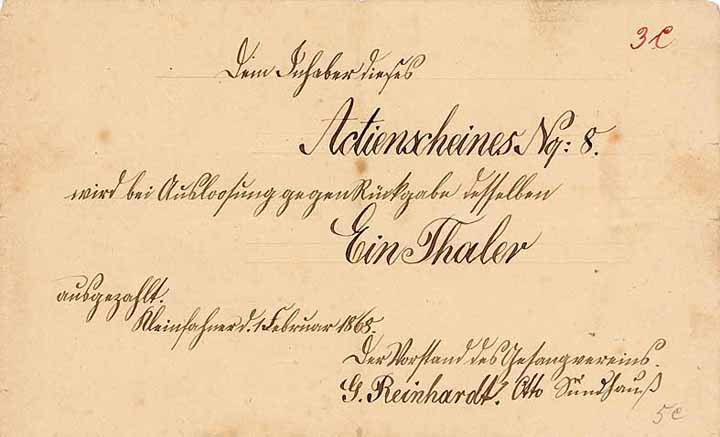 3 C
Dem Inhaber dieses
Actienscheines No: 8.
wird bei Ausloosung gegen Rückgabe desselben
Ein Thaler
ausgezahlt.
Kleinfahner d. 1 Februar 1868.
Der Vorstand des Gesangvereins.
G. Reinhardt. Otto Sündhauß
5 C